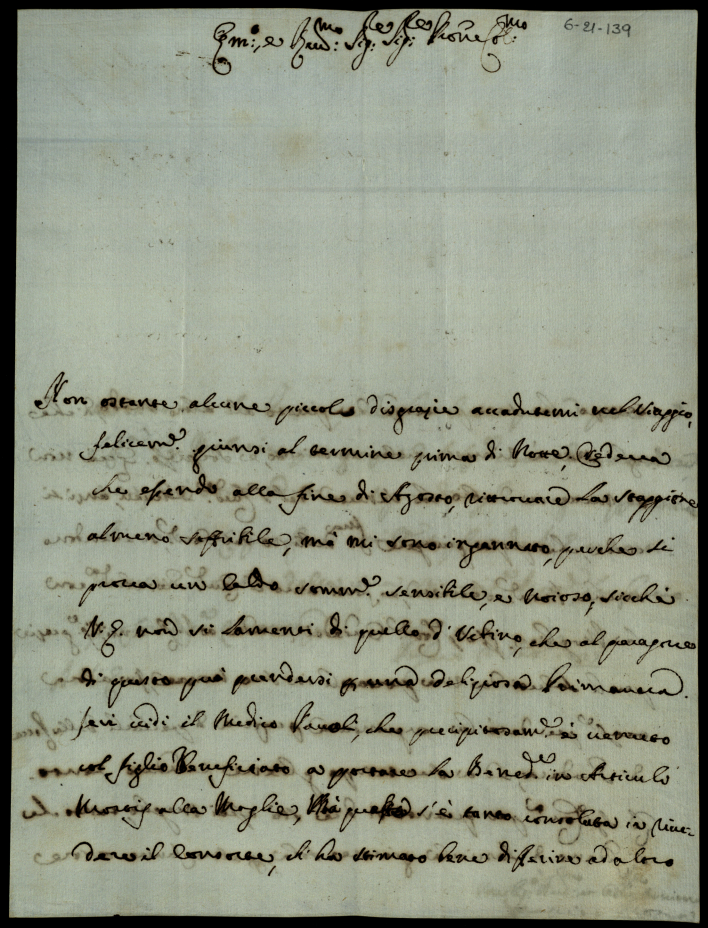 6-21-139
Em:, e Rev:mo Sig:re Sig:re P͞rone Col:mo
Non ostante alcune piccole disgrazie accadutemi nel Viaggio,
felicem.e giunsi al termine prima di Notte, Credeva
che essendo alla fine di Agosto, ritrovare la Staggione
almeno soffribile, mà mi sono ingannato, perche si
prova un Caldo somm.e sensibile, e noioso, sicchè
V. E. non si lamenti di quello d'Urbino, che al paragone
di questo può prendersi p una deliziosa Primavera.
Ieri vidi il Medico Pauoli, che precipitosam.e è venuto
col figlio Beneficiato a portare la Bened.ne in Articulo
Mortis alla Moglie, Mà questa s'è tanto consolata in rive-
dere il Consorte, che ha stimato bene differire ad altro